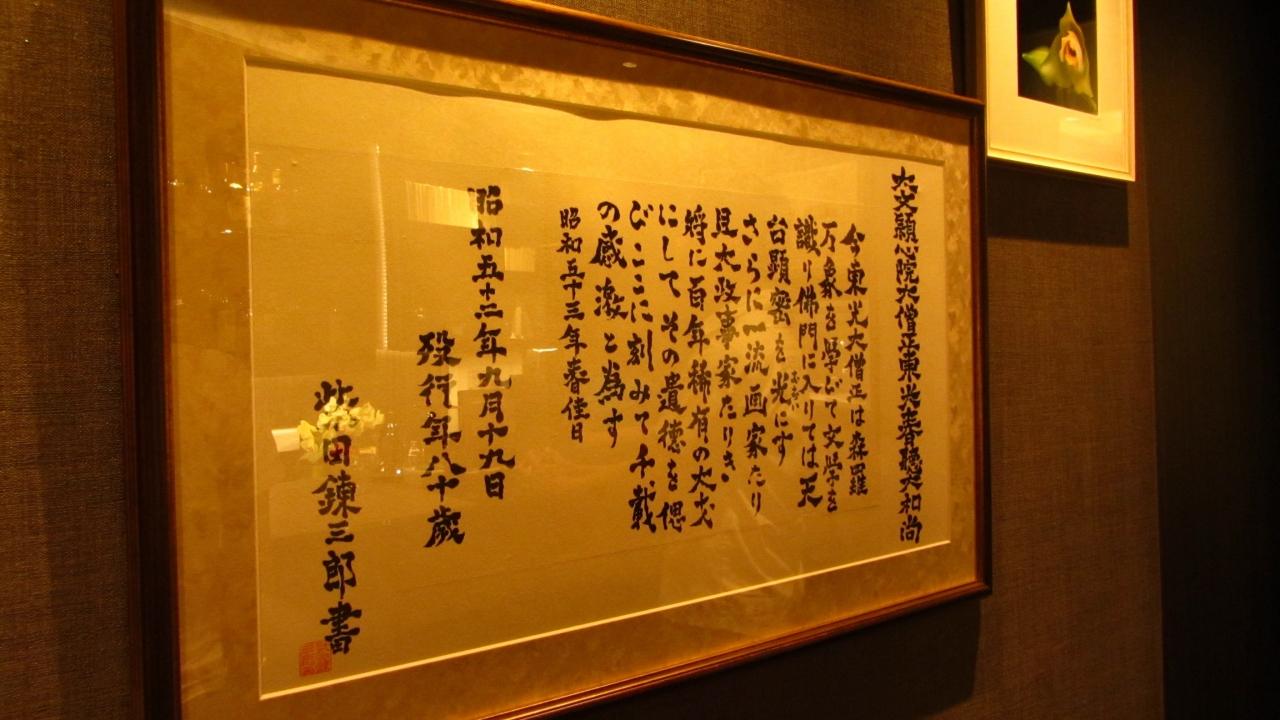 大文頴心院大僧正東光春聴大和尚
今東光大僧正は森羅
万象を学びて文学を
識り佛門に入りては天
台顕密を光にす
おおい
さらに一流画家たり
且大政事家たりき
将に百年稀有の大丈
にしてその遺徳を偲
びここに刻みて千載
の感激と為す
昭和五十三年春佳日
昭和五十二年九月十九日
歿行年八十歳
田錬三郎書